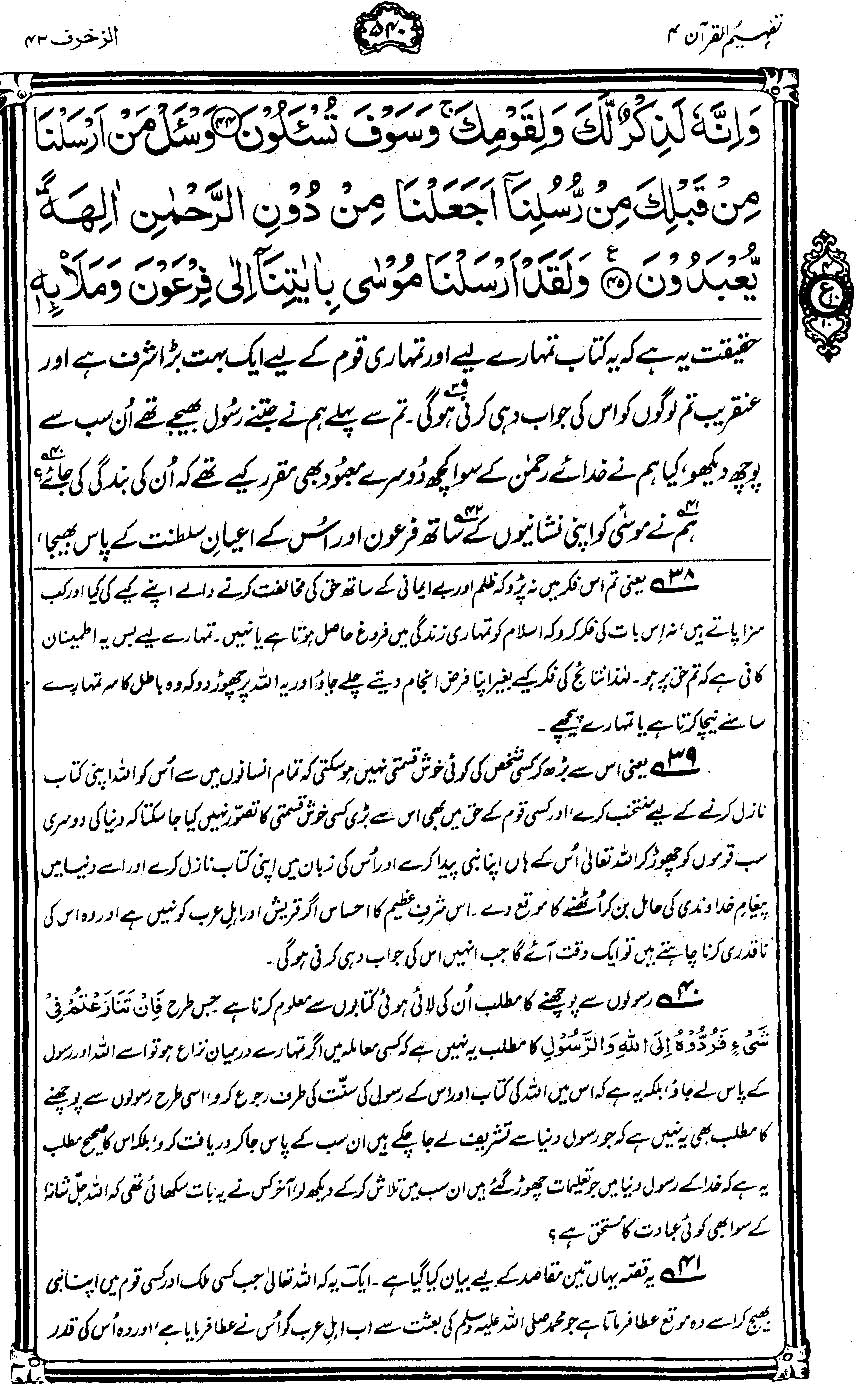 تفہیم القرآن ۴
۵۴۰
الزخرف ۴۳
وَاِنَّهٗ لَذِكْرٌ لَّكَ وَلِقَوْمِكَ ۚ وَسَوْفَ تُسْـَٔلُوْنَ ﴿۴۴﴾ وَسْـَٔلْ مَنْ اَرْسَلْنَا
مِنْ قَبْلِكَ مِنْ رُّسُلِنَاۤ اَجَعَلْنَا مِنْ دُوْنِ الرَّحْمٰنِ اٰلِهَةً
يُّعْبَدُوْنَ ﴿۴۵﴾ ع وَلَقَدْ اَرْسَلْنَا مُوْسٰى بِاٰيٰتِنَاۤ اِلٰى فِرْعَوْنَ وَمَلَا۠ئِهٖ
ع
۱۰
حقیقت یہ ہے کہ یہ کتاب تمہارے لیے اور تمہاری قوم کے لیے ایک بہت بڑا شرف ہے اور
عنقریب تم لوگوں کو اس کی جواب دہی کرنی ہوگی۳۹۔ تم سے پہلے ہم نے جتنے رسول بھیجے تھے اُن سب سے
پوچھ دیکھو، کیا ہم نے خدائے رحمٰن کے سوا کچھ دُوسرے معبُود بھی مقرر کیے تھے کہ اُن کی بندگی کی جائے؟۴۰
ہم۴۱ نے موسٰیؑ کو اپنی نشانیوں کے۴۲ ساتھ فرعون اور اُس کے اعیانِ سلطنت کے پاس بھیجا،
۳۸ یعنی تم اس فکر میں نہ پڑو کہ ظلم اور بے ایمانی کے ساتھ حق کی مخالفت کرنے والے اپنے کیے کی کیا اور کب
سزا پاتے ہیں، نہ اِس بات کی فکر کرو کہ اسلام کو تمہاری زندگی میں فروغ حاصل ہوتا ہے یا نہیں۔ تمہارے لیے بس یہ اطمینان
کافی ہے کہ تم حق پر ہو۔ لہٰذا نتائج کی فکر کیے بغیر اپنا فرض انجام دیتے چلے جاؤ اور یہ اللہ پر چھوڑ دو کہ وہ باطل کا سر تمہارے
سامنے نیچا کرتا ہے یا تمہارے پیچھے۔
۳۹ یعنی اس سے بڑھ کر کسی شخص کی کوئی خوش قسمتی نہیں ہو سکتی کہ تمام انسانوں میں سے اُس کو اللہ اپنی کتاب
نازل کرنے کے لیے منتخب کرے، اور کسی قوم کے حق میں بھی اس سے بڑی کسی خوش قسمتی کا تصوّر نہیں کیا جا سکتا کہ دنیا کی دوسری
سب قوموں کو چھوڑ کر اللہ تعالٰی اُس کے ہاں اپنا نبی پیدا کرے اور اُس کی زبان میں اپنی کتاب نازل کرے اور اسے دنیا میں
پیغامِ خداوندی کی حامل بن کر اُٹھنے کا موقع دے۔ اس شرفِ عظیم کا احساس اگر قریش اور اہلِ عرب کو نہیں ہے اور وہ اس کی
ناقدری کرنا چاہتے ہیں تو ایک وقت آئے گا جب انہیں اس کی جواب دہی کرنی ہوگی۔
۴۰ رسولوں سے پوچھنے کا مطلب اُن کی لائی ہوئی کتابوں سے معلوم کرنا ہے جس طرح فَاِنْ تَنَازَعْتُمْ فِیْ
شَیْءٍ فَرُدُّوْهُ اِلَی اللهِ وَالرَّسُوْلِ کا مطلب یہ نہیں ہے کہ کسی معاملہ میں اگر تمہارے درمیان نزاع ہو تو اسے اللہ اور رسول
کے پاس لے جاؤ، بلکہ یہ ہے کہ اس میں اللہ کی کتاب اور اس کے رسول کی سنّت کی طرف رجوع کرو، اسی طرح رسولوں سے پوچھنے
کا مطلب بھی یہ نہیں ہے کہ جو رسول دنیا سے تشریف لے جا چکے ہیں ان سب کے پاس جا کر دریافت کرو، بلکہ اس کا صحیح مطلب
یہ ہے کہ خدا کے رسول دنیا میں جو تعلیمات چھوڑ گئے ہیں ان سب میں تلاش کر کے دیکھ لو، آخر کس نے یہ بات سکھائی تھی کہ اللہ جلّ شانہٗ
کے سوا بھی کوئی عبادت کا مستحق ہے؟
۴۱ یہ قصّہ یہاں تین مقاصد کے لیے بیان کیا گیا ہے۔ ایک یہ کہ اللہ تعالیٰ جب کسی ملک اور کسی قوم میں اپنا نبی
بھیج کر اسے وہ موقع عطا فرماتا ہے جو محمد صلی اللہ علیہ وسلم کی بعثت سے اب اہلِ عرب کو اُس نے عطا فرمایا ہے، اور وہ اُس کی قدر